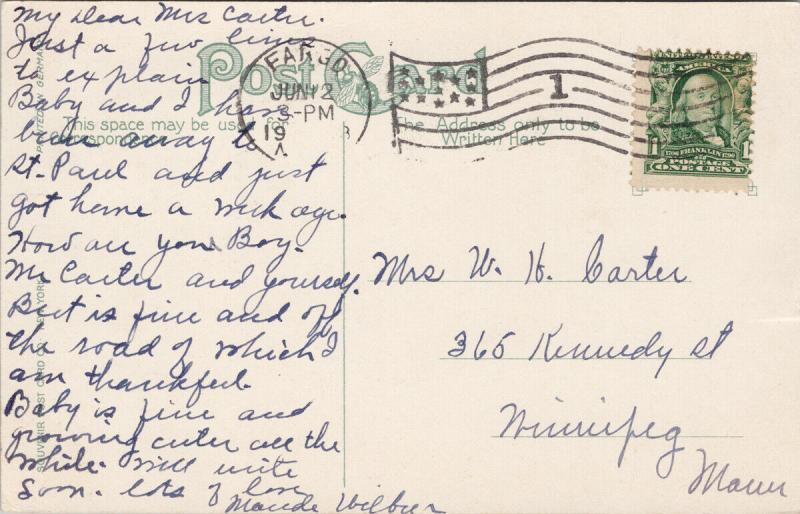 My Dear Mrs Carter.
Just a few lines
to explain
Baby and I have
been away to
St. Paul and just
got home a week ago.
How are you Boy.
Mr Carter and yourself.
Burt is fine and off
the road of which I
am thankful.
Baby is fine and
growing cuter all the
while. Will write
soon. lots of love
Maude Wilbur
Post Card
This space may be used for
Correspondence
The Address only to be
Written Here
FARGO
JUN 12
3-PM
19 8
A
1
UNITED STATES OF
AMERICA
1706 FRANKLIN 1790
POSTAGE
ONE CENT
1 1
Mrs W. H. Carter
365 Kennedy St
Winnipeg
Mann
PRINTED IN GERMANY
SOUVENIR POST CARD CO. NEW YORK